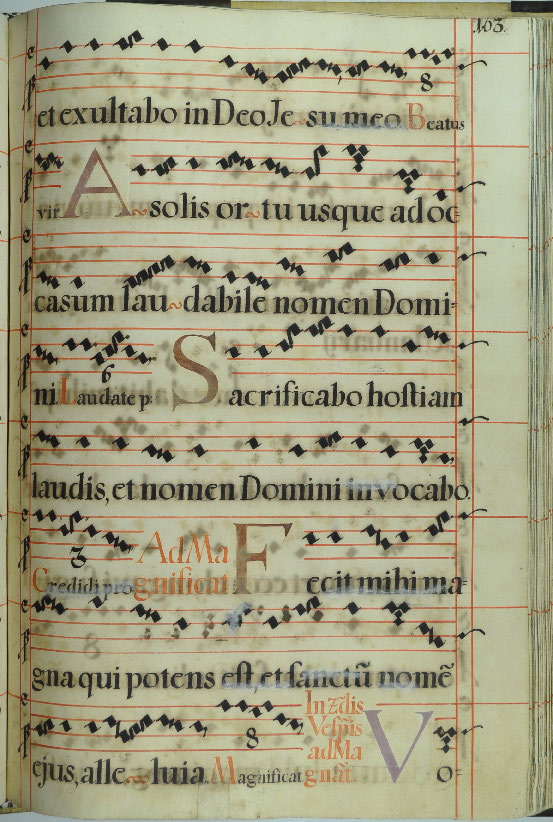 103.
8
et exultabo in Deo Je~su meo Beatus
vir A~solis or~tu usque ad oc-
casum lau~dabile nomen Domi-
6
ni. Laudate p: Sacrificabo hoſtiam
laudis, et nomen Domini invocabo.
3 Ad Ma
Credidi pro gnificat Fecit mihi ma-
gna qui potens eſt, et ſanctū nomē
8
ejus, alle~luia. Magnificat
ad Ma
gnifit. Vo-